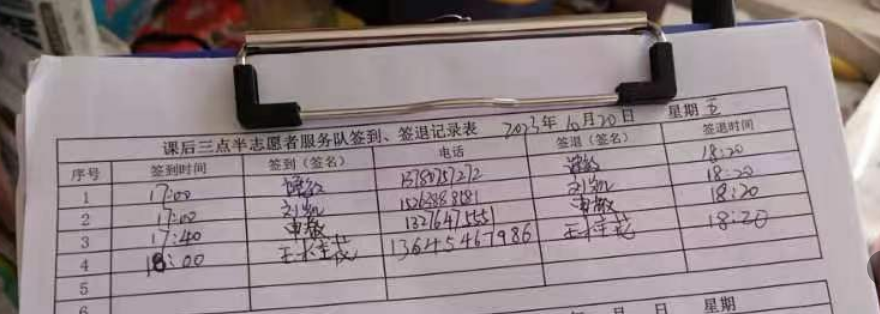 课后三点半志愿者服务队签到、签退记录表 2023年10月20日 星期五
序号 签到时间 签到（签名） 电话 签退（签名） 签退时间
1 17:00 13780757272 18:20
2 17:00 刘凯 15263888181 刘凯 18:20
3 17:40 申敏 13276475551 申敏 18:20
4 18:00 13645467986 18:20
5
6
月 日 星期